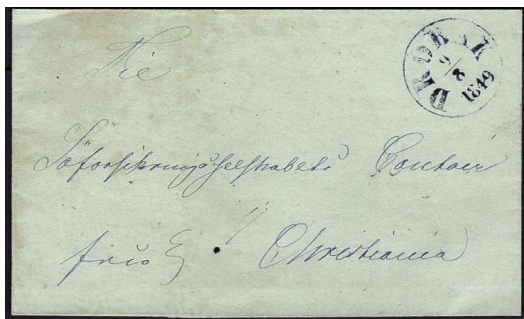 DRÖBAK
9/8
1849
Söforsikringsselskabets Contoir
frio
Christiania